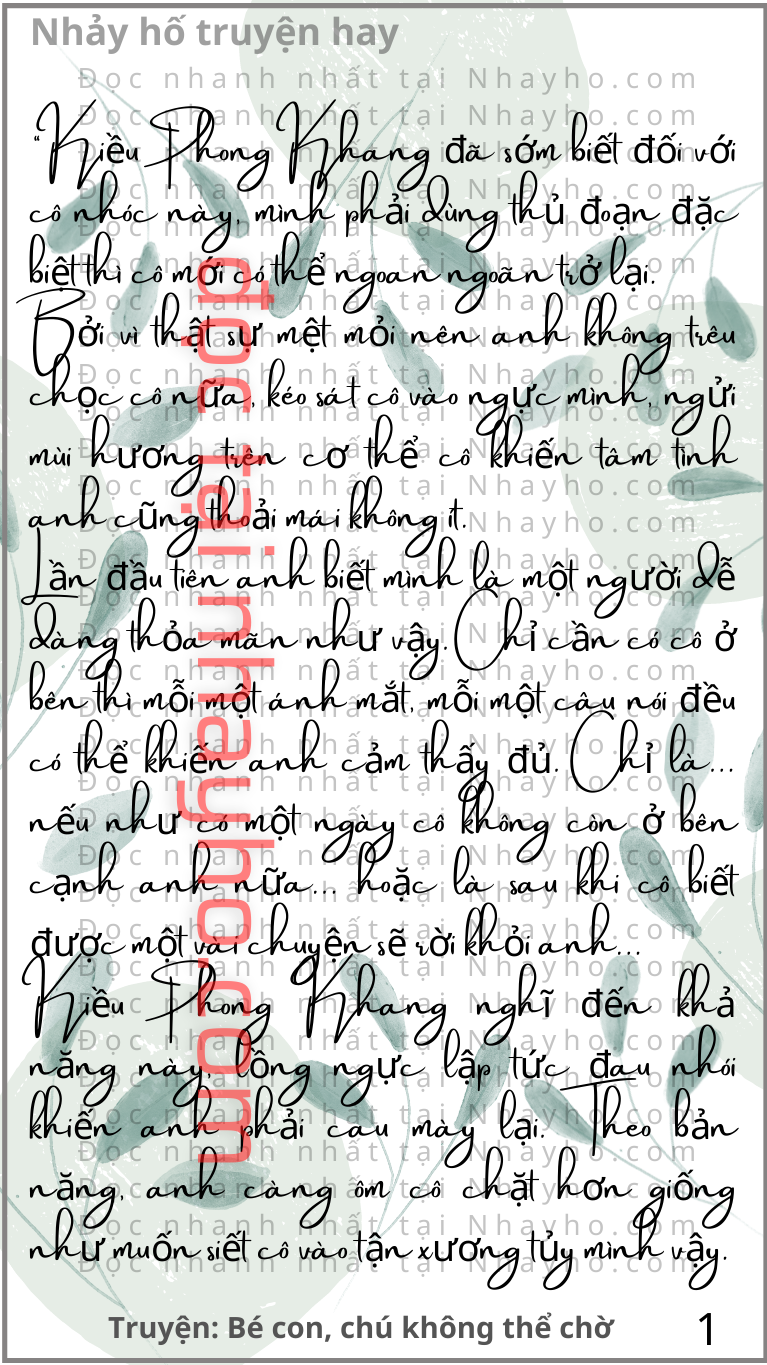 Nhảy hố truyện hay
Đọc nhanh nhất tại Nhayho.com
Đọc nhanh nhất tại Nhayho.com
“Kiều Phong Khang đã sớm biết đối với
cô nhóc này, mình phải dùng thủ đoạn đặc
biệt thì cô mới có thể ngoan ngoãn trở lại.
Bởi vì thật sự mệt mỏi nên anh không trêu
chọc cô nữa, kéo sát cô vào ngực mình, ngửi
mùi hương trên cơ thể cô khiến tâm tình
anh cũng thoải mái không ít.
Lần đầu tiên anh biết mình là một người dễ
dàng thỏa mãn như vậy. Chỉ cần có cô ở
bên thì mỗi một ánh mắt, mỗi một câu nói đều
có thể khiến anh cảm thấy đủ. Chỉ là...
nếu như có một ngày cô không còn ở bên
cạnh anh nữa... hoặc là sau khi cô biết
được một vài chuyện sẽ rời khỏi anh...
Kiều Phong Khang nghĩ đến khả
năng này, lồng ngực lập tức đau nhói
khiến anh phải cau mày lại. Theo bản
năng, anh càng ôm cô chặt hơn giống
như muốn siết cô vào tận xương tủy mình vậy.
đọc tại nhayho.com
Truyện: Bé con, chú không thể chờ
1